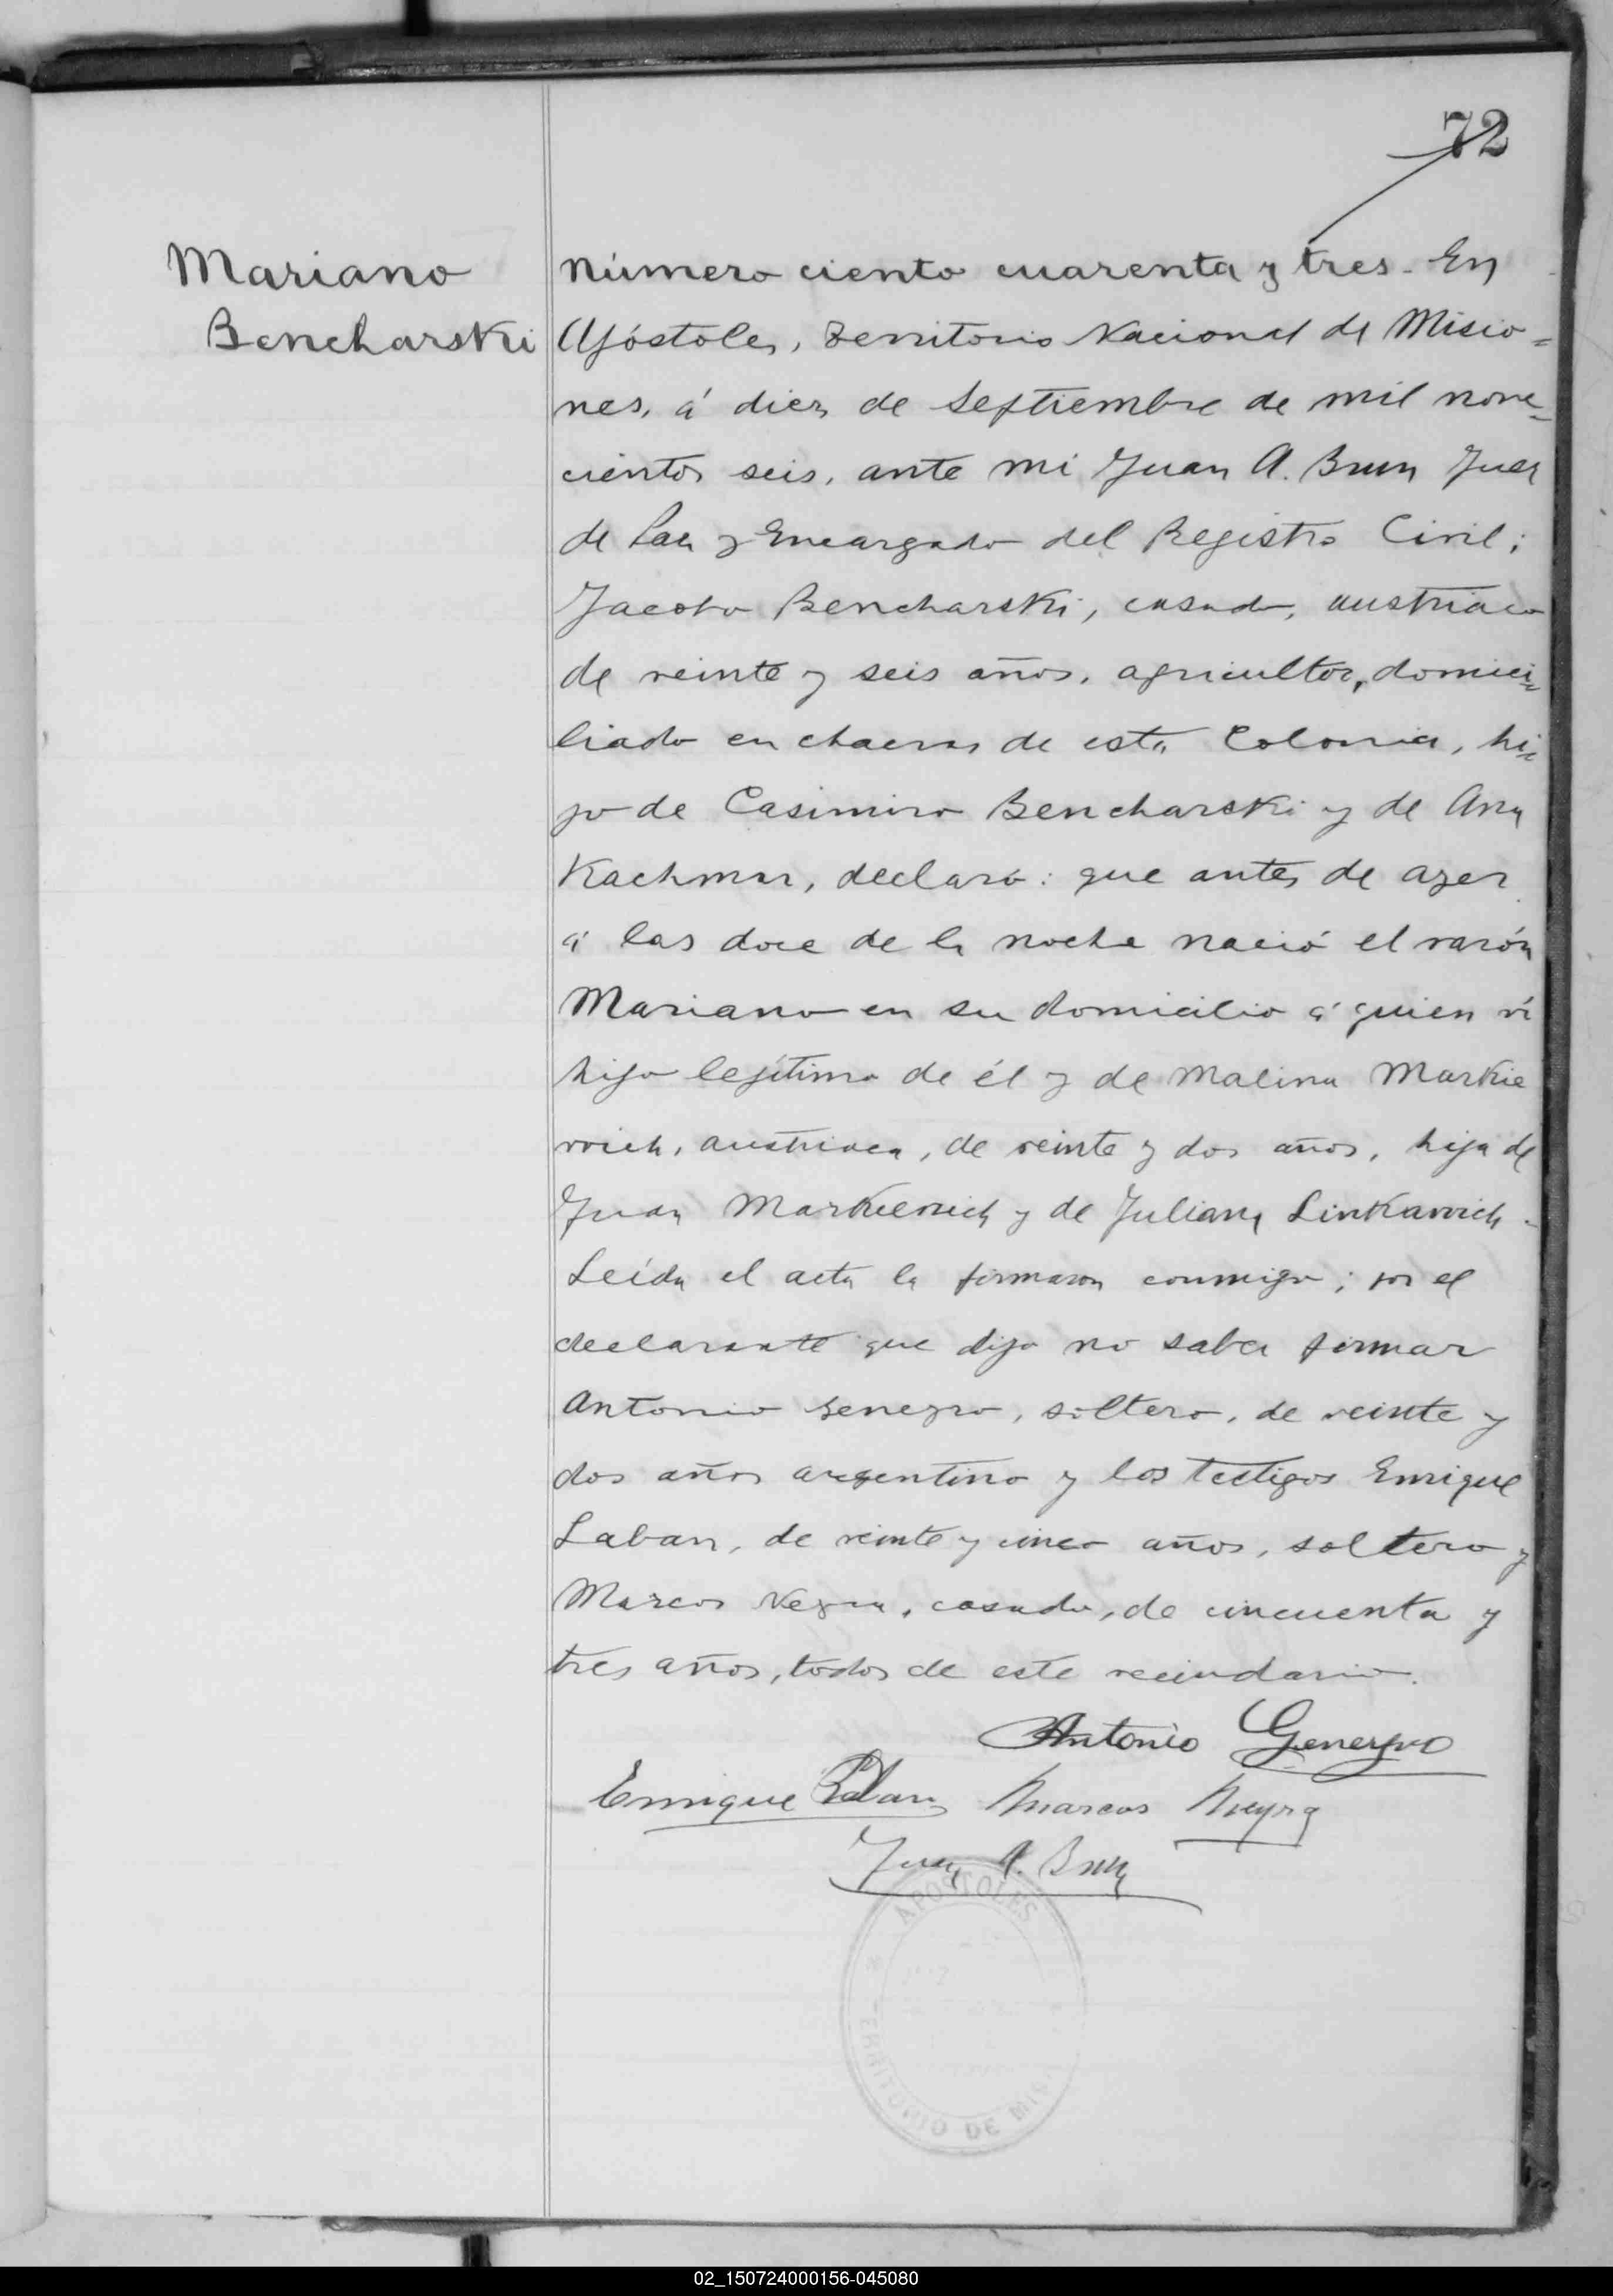 72
Mariano
Bencharski
Número ciento cuarenta y tres. En
Apóstoles, Territorio Nacional de Misio=
nes, á diez de Septiembre de mil nove=
cientos seis, ante mi Juan A. Brun Juez
de Paz y Encargado del Registro Civil;
Jacobo Bencharski, casado, austriaco
de veinte y seis años, agricultor, domici=
liado en chacras de esta Colonia, hi=
jo de Casimiro Bencharski y de Ana
Kachmar, declaró: que antes de ayer
á las doce de la noche nació el varón
Mariano en su domicilio á quien ví
hijo legítimo de él y de Malina Markie
wich, austriaca, de veinte y dos años, hija de
Juan Markiewich y de Juliana Linkawich.
Leída el acta la firmaron conmigo; por el
declarante que dijo no saber firmar
Antonio Genezro, soltero, de veinte y
dos años argentino y los testigos Enrique
Laban, de veinte y cinco años, soltero y
Marcos Neyra, casado, de cincuenta y
tres años, todos de este vecindario.
Antonio
Enrique Marcos Neyra
Juan A. Brun
APOSTOLES
TERRITORIO DE MISI
02_150724000156-045080